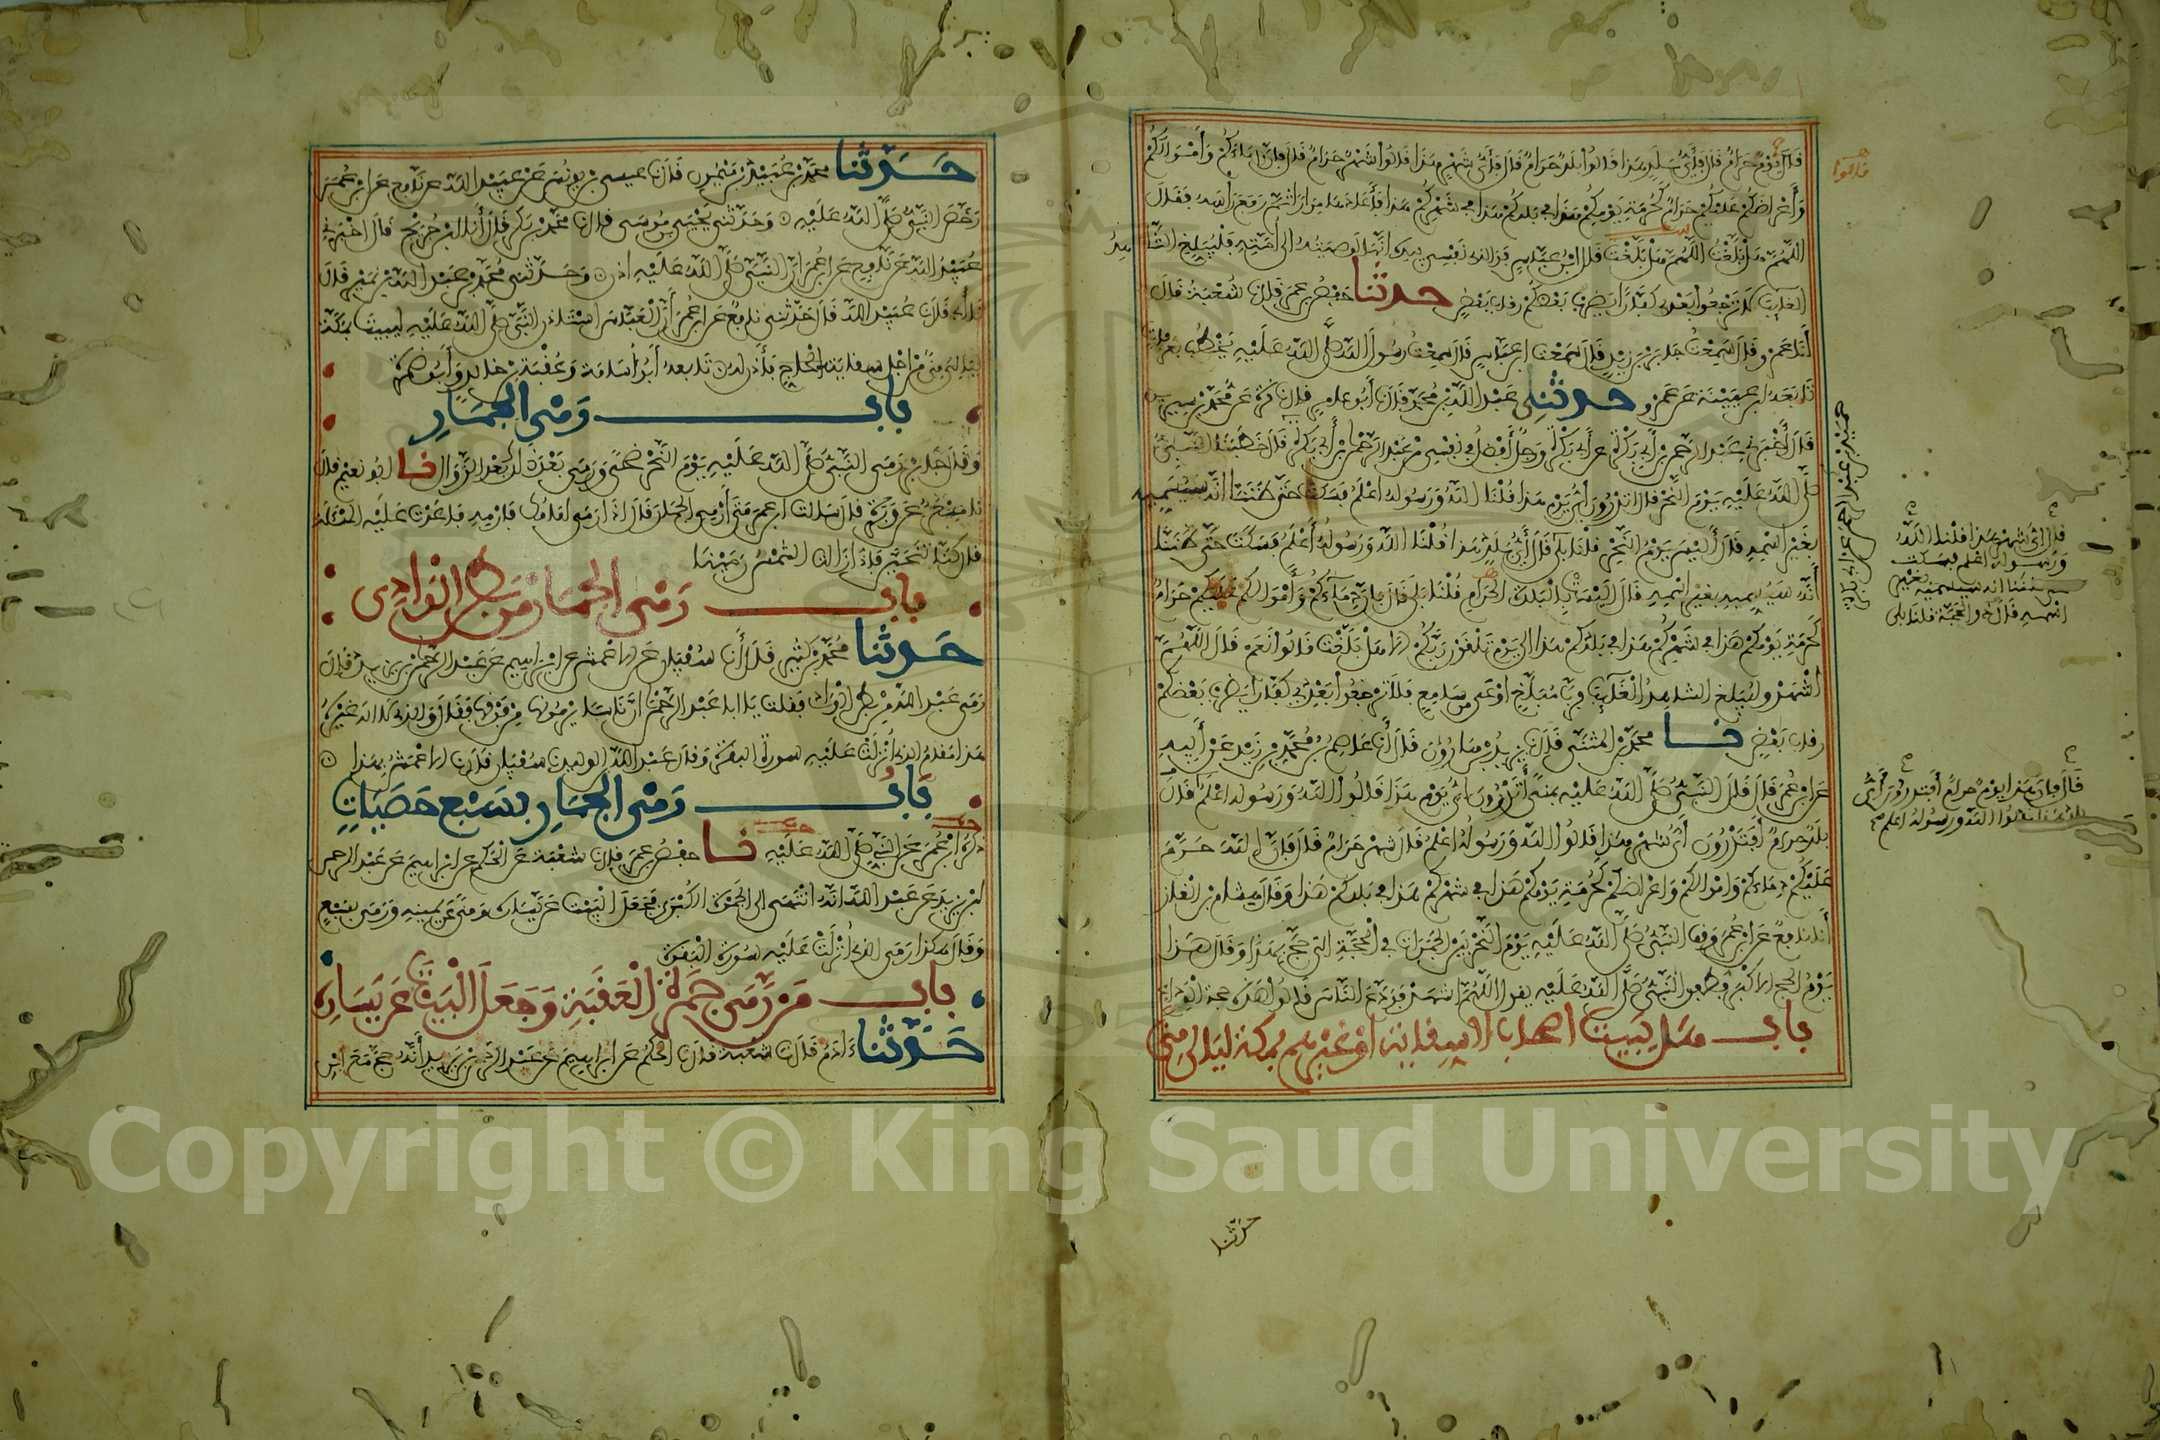 قال يوم حرام قال فأي بلد هذا قالوا بلد حرام قال فأي شهر هذا قالوا شهر حرام قال فإن دماءكم وأموالكم
وأعراضكم عليكم حرام كحرمة يومكم هذا في بلدكم هذا في شهركم هذا فأعادها مرارا ثم رفع رأسه فقال
اللهم هل بلغت اللهم هل بلغت قال ابن عباس فوالذي نفسي بيده إنها لوصيته إلى أمته فليبلغ الشاهد
الغائب لا ترجعوا بعدي كفارا يضرب بعضكم رقاب بعض حدثنا حفص بن عمر قال نا شعبة قال
أنا عمرو قال سمعت جابر بن زيد قال سمعت ابن عباس قال سمعت رسول الله صلى الله عليه يخطب بعرفات
تابعه ابن عيينة عن عمرو حدثني عبد الله بن محمد قال نا أبو عامر قال نا قرة عن محمد بن سيرين
قال أخبرني عبد الرحمن بن أبي بكرة عن أبي بكرة ورجل أفضل في نفسي من عبد الرحمن بن أبي بكرة قال خطبنا النبي
صلى الله عليه يوم النحر قال أتدرون أي يوم هذا قلنا الله ورسوله أعلم فسكت حتى ظننا أنه سيسميه
بغير اسمه قال أليس يوم النحر قلنا بلى قال أي بلد هذا قلنا الله ورسوله أعلم فسكت حتى ظننا
أنه سيسميه بغير اسمه قال أليست بالبلدة الحرام قلنا بلى قال فإن دماءكم وأموالكم عليكم حرام
كحرمة يومكم هذا في شهركم هذا في بلدكم هذا إلى يوم تلقون ربكم ألا هل بلغت قالوا نعم قال اللهم
اشهد وليبلغ الشاهد الغائب فرب مبلغ أوعى من سامع فلا ترجعوا بعدي كفارا يضرب بعضكم
رقاب بعض نا محمد بن المثنى قال نا يزيد بن هارون قال أنا عاصم بن محمد بن زيد عن أبيه
عن ابن عمر قال قال النبي صلى الله عليه بمنى أتدرون أي يوم هذا قالوا الله ورسوله أعلم قال
بلد حرام أفتدرون أي شهر هذا قالوا الله ورسوله أعلم قال شهر حرام قال فإن الله حرم
عليكم دماءكم وأموالكم وأعراضكم كحرمة يومكم هذا في شهركم هذا في بلدكم هذا وقال هشام بن الغاز
أنا نافع عن ابن عمر وقف النبي صلى الله عليه يوم النحر بين الجمرات في الحجة التي حج بهذا وقال هذا
يوم الحج الأكبر فطفق النبي صلى الله عليه يقول اللهم اشهد فودع الناس فقالوا هذه حجة الوداع
باب هل يبيت أصحاب السقاية أو غيرهم بمكة ليالي منى
قالوا
قال أي شهر هذا قلنا الله
ورسوله أعلم فسكت
حتى ظننا أنه سيسميه بغير
اسمه قال ذو الحجة قلنا بلى
قال فإن هذا يوم حرام أفتدرون أي
بلد هذا قالوا الله ورسوله أعلم
حدثنا
حدثنا محمد بن عبيد بن ميمون قال نا عيسى بن يونس عن عبيد الله عن نافع عن ابن عمر
رخص النبي صلى الله عليه وحدثني يحيى بن موسى قال نا محمد بن بكر قال أنا ابن جريج قال أخبرني
عبيد الله عن نافع عن ابن عمر أن النبي صلى الله عليه أذن وحدثني محمد بن عبد الله بن نمير قال
نا أبي قال نا عبيد الله قال حدثني نافع عن ابن عمر أن العباس استأذن النبي صلى الله عليه ليبيت بمكة
ليالي منى من أجل سقايته فأذن له تابعه أبو أسامة وعقبة بن خالد وأبو ضمرة
باب رمي الجمار
وقال جابر رمى النبي صلى الله عليه يوم النحر ضحى ورمى بعد ذلك بعد الزوال نا أبو نعيم قال
نا مسعر عن وبرة قال سألت ابن عمر متى أرمي الجمار قال إذا رمى إمامك فارمه فأعدت عليه المسألة
قال كنا نتحين فإذا زالت الشمس رمينا
باب رمي الجمار من بطن الوادي
حدثنا محمد بن كثير قال أنا سفيان عن الأعمش عن إبراهيم عن عبد الرحمن بن يزيد قال
رمى عبد الله من بطن الوادي فقلت يا أبا عبد الرحمن إن ناسا يرمونها من فوقها فقال والذي لا إله غيره
هذا مقام الذي أنزلت عليه سورة البقرة وقال عبد الله بن الوليد نا سفيان قال نا الأعمش بهذا
باب رمي الجمار بسبع حصيات
ذكره ابن عمر عن النبي صلى الله عليه نا حفص بن عمر قال نا شعبة عن الحكم عن إبراهيم عن عبد الرحمن
ابن يزيد عن عبد الله أنه انتهى إلى الجمرة الكبرى فجعل البيت عن يساره ومنى عن يمينه ورمى بسبع
وقال هكذا رمى الذي أنزلت عليه سورة البقرة
باب من رمى جمرة العقبة وجعل البيت عن يساره
حدثنا ءادم قال نا شعبة قال نا الحكم عن إبراهيم عن عبد الرحمن بن يزيد أنه حج مع ابن
Copyright © King Saud University